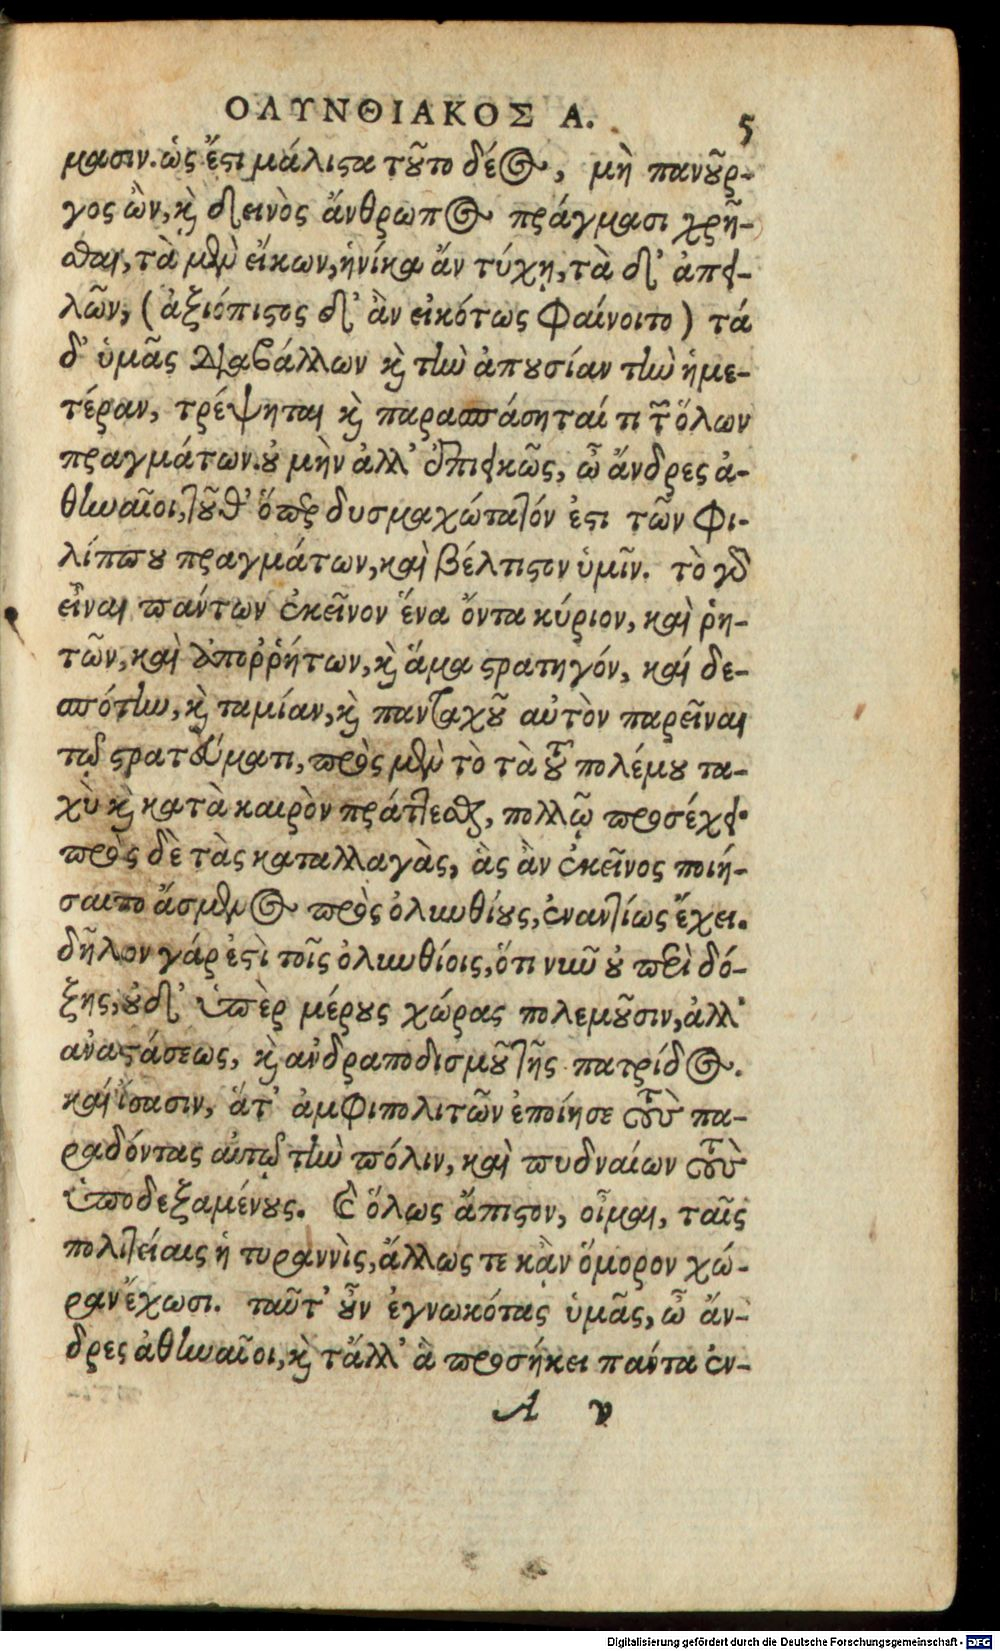 ΟΛΥΝΘΙΑΚΟΣ Α. 5
μασιν. ὡς ἔϛι μάλιϛα τοῦτο δέος, μὴ πανοῦρ-
γος ὢν, καὶ δεινὸς ἄνθρωπος πράγμασι χρῆ-
σθαι, τὰ μὲν εἴκων, ἡνίκα ἄν τύχῃ, τὰ δ' ἀπει-
λῶν, (ἀξιόπιϛος δ' ἂν εἰκότως φαίνοιτο) τά
δ' ὑμᾶς διαβάλλων καὶ τὴν ἀπουσίαν τὴν ἡμε-
τέραν, τρέψηται καὶ παρασπάσηταί τι τῶν ὅλων
πραγμάτων. οὐ μὴν ἀλλ' ἐπιεικῶς, ὦ ἄνδρες ἀ-
θηναῖοι, τοῦθ' ὅπερ δυσμαχώτατόν ἐϛι τῶν Φι-
λίππου πραγμάτων, καὶ βέλτιϛον ὑμῖν. τὸ γὰρ
εἶναι πάντων ἐκεῖνον ἕνα ὄντα κύριον, καὶ ῥη-
τῶν, καὶ ἀποῤῥήτων, καὶ ἅμα ϛρατηγόν, καί δε-
σπότην, καὶ ταμίαν, καὶ πανταχοῦ αὐτὸν παρεῖναι
τῷ ϛρατεύματι, πρὸς μὲν τὸ τὰ τοῦ πολέμου τα-
χὺ καὶ κατὰ καιρὸν πράττεσθαι, πολλῷ προσέχει·
πρὸς δὲ τὰς καταλλαγὰς, ἃς ἂν ἐκεῖνος ποιή-
σαιτο ἄσμενος πρὸς ὀλυνθίους, ἐναντίως ἔχει.
δῆλον γάρ ἐϛὶ τοῖς ὀλυνθίοις, ὅτι νῦν οὐ περὶ δό-
ξης, οὐδ' ὑπὲρ μέρους χώρας πολεμοῦσιν, ἀλλ'
ἀναϛάσεως, καὶ ἀνδραποδισμοῦ τῆς πατρίδος.
καί ἴσασιν, ἅτ' ἀμφιπολιτῶν ἐποίησε τοὺς πα-
ραδόντας αὐτῷ τὴν πόλιν, καὶ πυδναίων τοὺς
ὑποδεξαμένους. Καὶ ὅλως ἄπιϛον, οἶμαι, ταῖς
πολιτείαις ἡ τυραννὶς, ἄλλως τε κἂν ὅμορον χώ-
ραν ἔχωσι. ταῦτ' οὖν ἐγνωκότας ὑμᾶς, ὦ ἄν-
δρες ἀθηναῖοι, καὶ τἄλλ' ἃ προσήκει πάντα ἐν-
A v
Digitalisierung gefördert durch die Deutsche Forschungsgemeinschaft - DFG